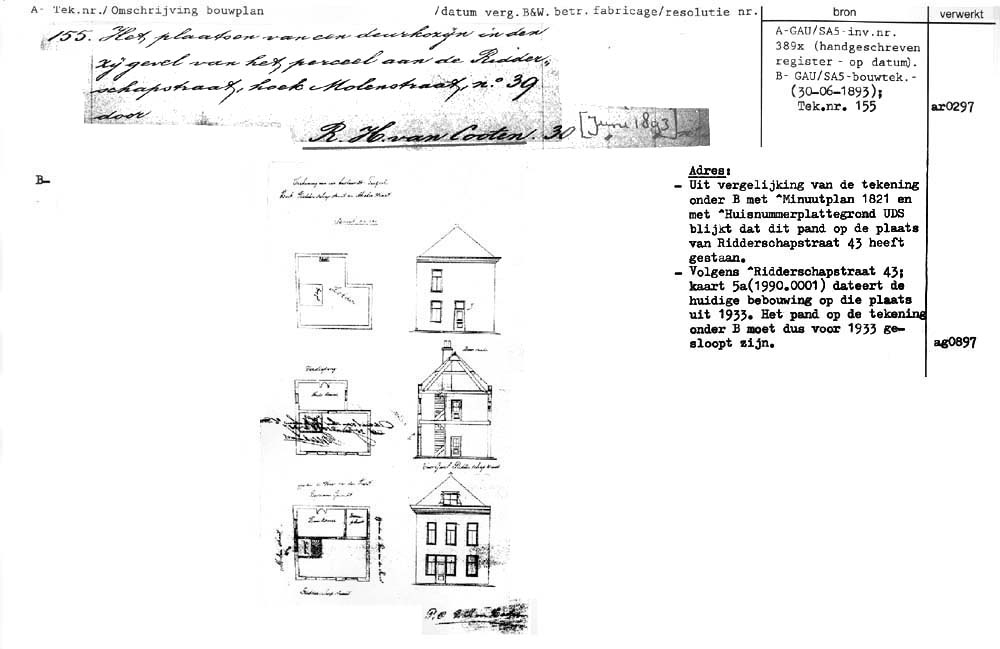 A- Tek.nr./Omschrijving bouwplan /datum verg.B&W. betr. fabricage/resolutie nr. bron verwerkt
155. Het plaatsen van een deurkozijn in den
zijgevel van het perceel aan de Ridder,
schapstraat, hoek Molenstraat, no 39
door
R. H. van Cooten. 30 [Juni 1893]
A-GAU/SA5-inv.nr.
389x (handgeschreven
register - op datum).
B- GAU/SA5-bouwtek.-
(30-06-1893);
Tek.nr. 155
ar0297
B-
Adres:
- Uit vergelijking van de tekening
onder B met ^Minuutplan 1821 en
met ^Huisnummerplattegrond UDS
blijkt dat dit pand op de plaats
van Ridderschapstraat 43 heeft
gestaan.
- Volgens ^Ridderschapstraat 43;
kaart 5a(1990.0001) dateert de
huidige bebouwing op die plaats
uit 1933. Het pand op de tekening
onder B moet dus voor 1933 ge-
sloopt zijn.
ag0897
Zolder
Verdieping